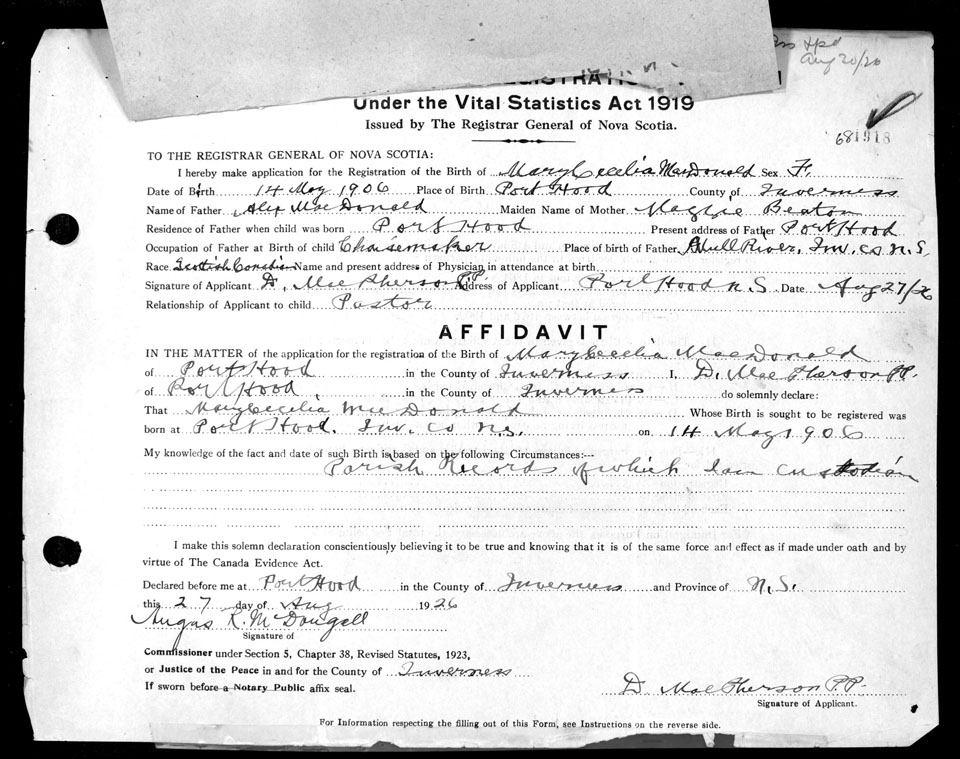 Aug 20/26
681918
Under the Vital Statistics Act 1919
Issued by The Registrar General of Nova Scotia.
TO THE REGISTRAR GENERAL OF NOVA SCOTIA:
I hereby make application for the Registration of the Birth of Mary Cecelia MacDonald Sex F.
Date of Birth 14 May 1906 Place of Birth Port Hood County of Inverness
Name of Father Alex MacDonald Maiden Name of Mother Maggie Beaton
Residence of Father when child was born Port Hood Present address of Father Port Hood
Occupation of Father at Birth of child Place of birth of Father Hull River, Inv. Co N.S.
Race Scottish Canadian Name and present address of Physician in attendance at birth
Signature of Applicant D. MacPherson P.P. Address of Applicant Port Hood N.S. Date Aug 27/26
Relationship of Applicant to child Pastor
AFFIDAVIT
IN THE MATTER of the application for the registration of the Birth of Mary Cecelia MacDonald
of Port Hood in the County of Inverness I, D. MacPherson P.P.
of Port Hood, in the County of Inverness do solemnly declare:
That Mary Cecilia MacDonald Whose Birth is sought to be registered was
born at Port Hood. Inv. Co N.S. on 14 May 1906
My knowledge of the fact and date of such Birth is based on the following Circumstances:—
Parish Records of which I am custodian
I make this solemn declaration conscientiously believing it to be true and knowing that it is of the same force and effect as if made under oath and by
virtue of The Canada Evidence Act.
Declared before me at Port Hood in the County of Inverness and Province of N.S.
this 27 day of Aug 1926
Angus R. McDougall
Signature of
Commissioner under Section 5, Chapter 38, Revised Statutes, 1923,
or Justice of the Peace in and for the County of Inverness
If sworn before a Notary Public affix seal.
D. MacPherson P.P.
Signature of Applicant.
For Information respecting the filling out of this Form, see Instructions on the reverse side.